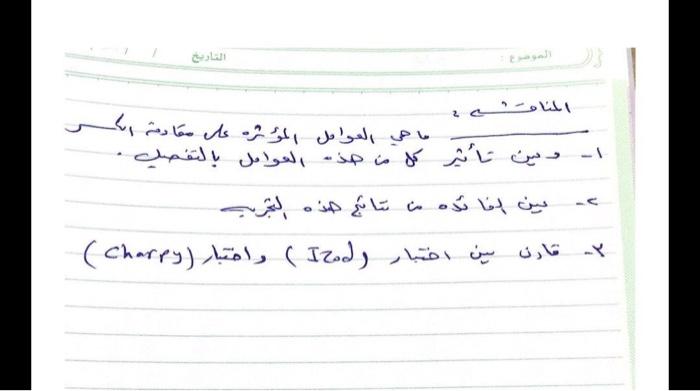 الموضوع : التاريخ / /
المناقشه :
ما هي العوامل المؤثره على مقاومة الكسر
١- وبين تأثير كل من هذه العوامل بالتفصيل .
٢- بين الفائده من نتائج هذه التجربه
٣- قارن بين اختبار (Izod) واختبار (Charpy)